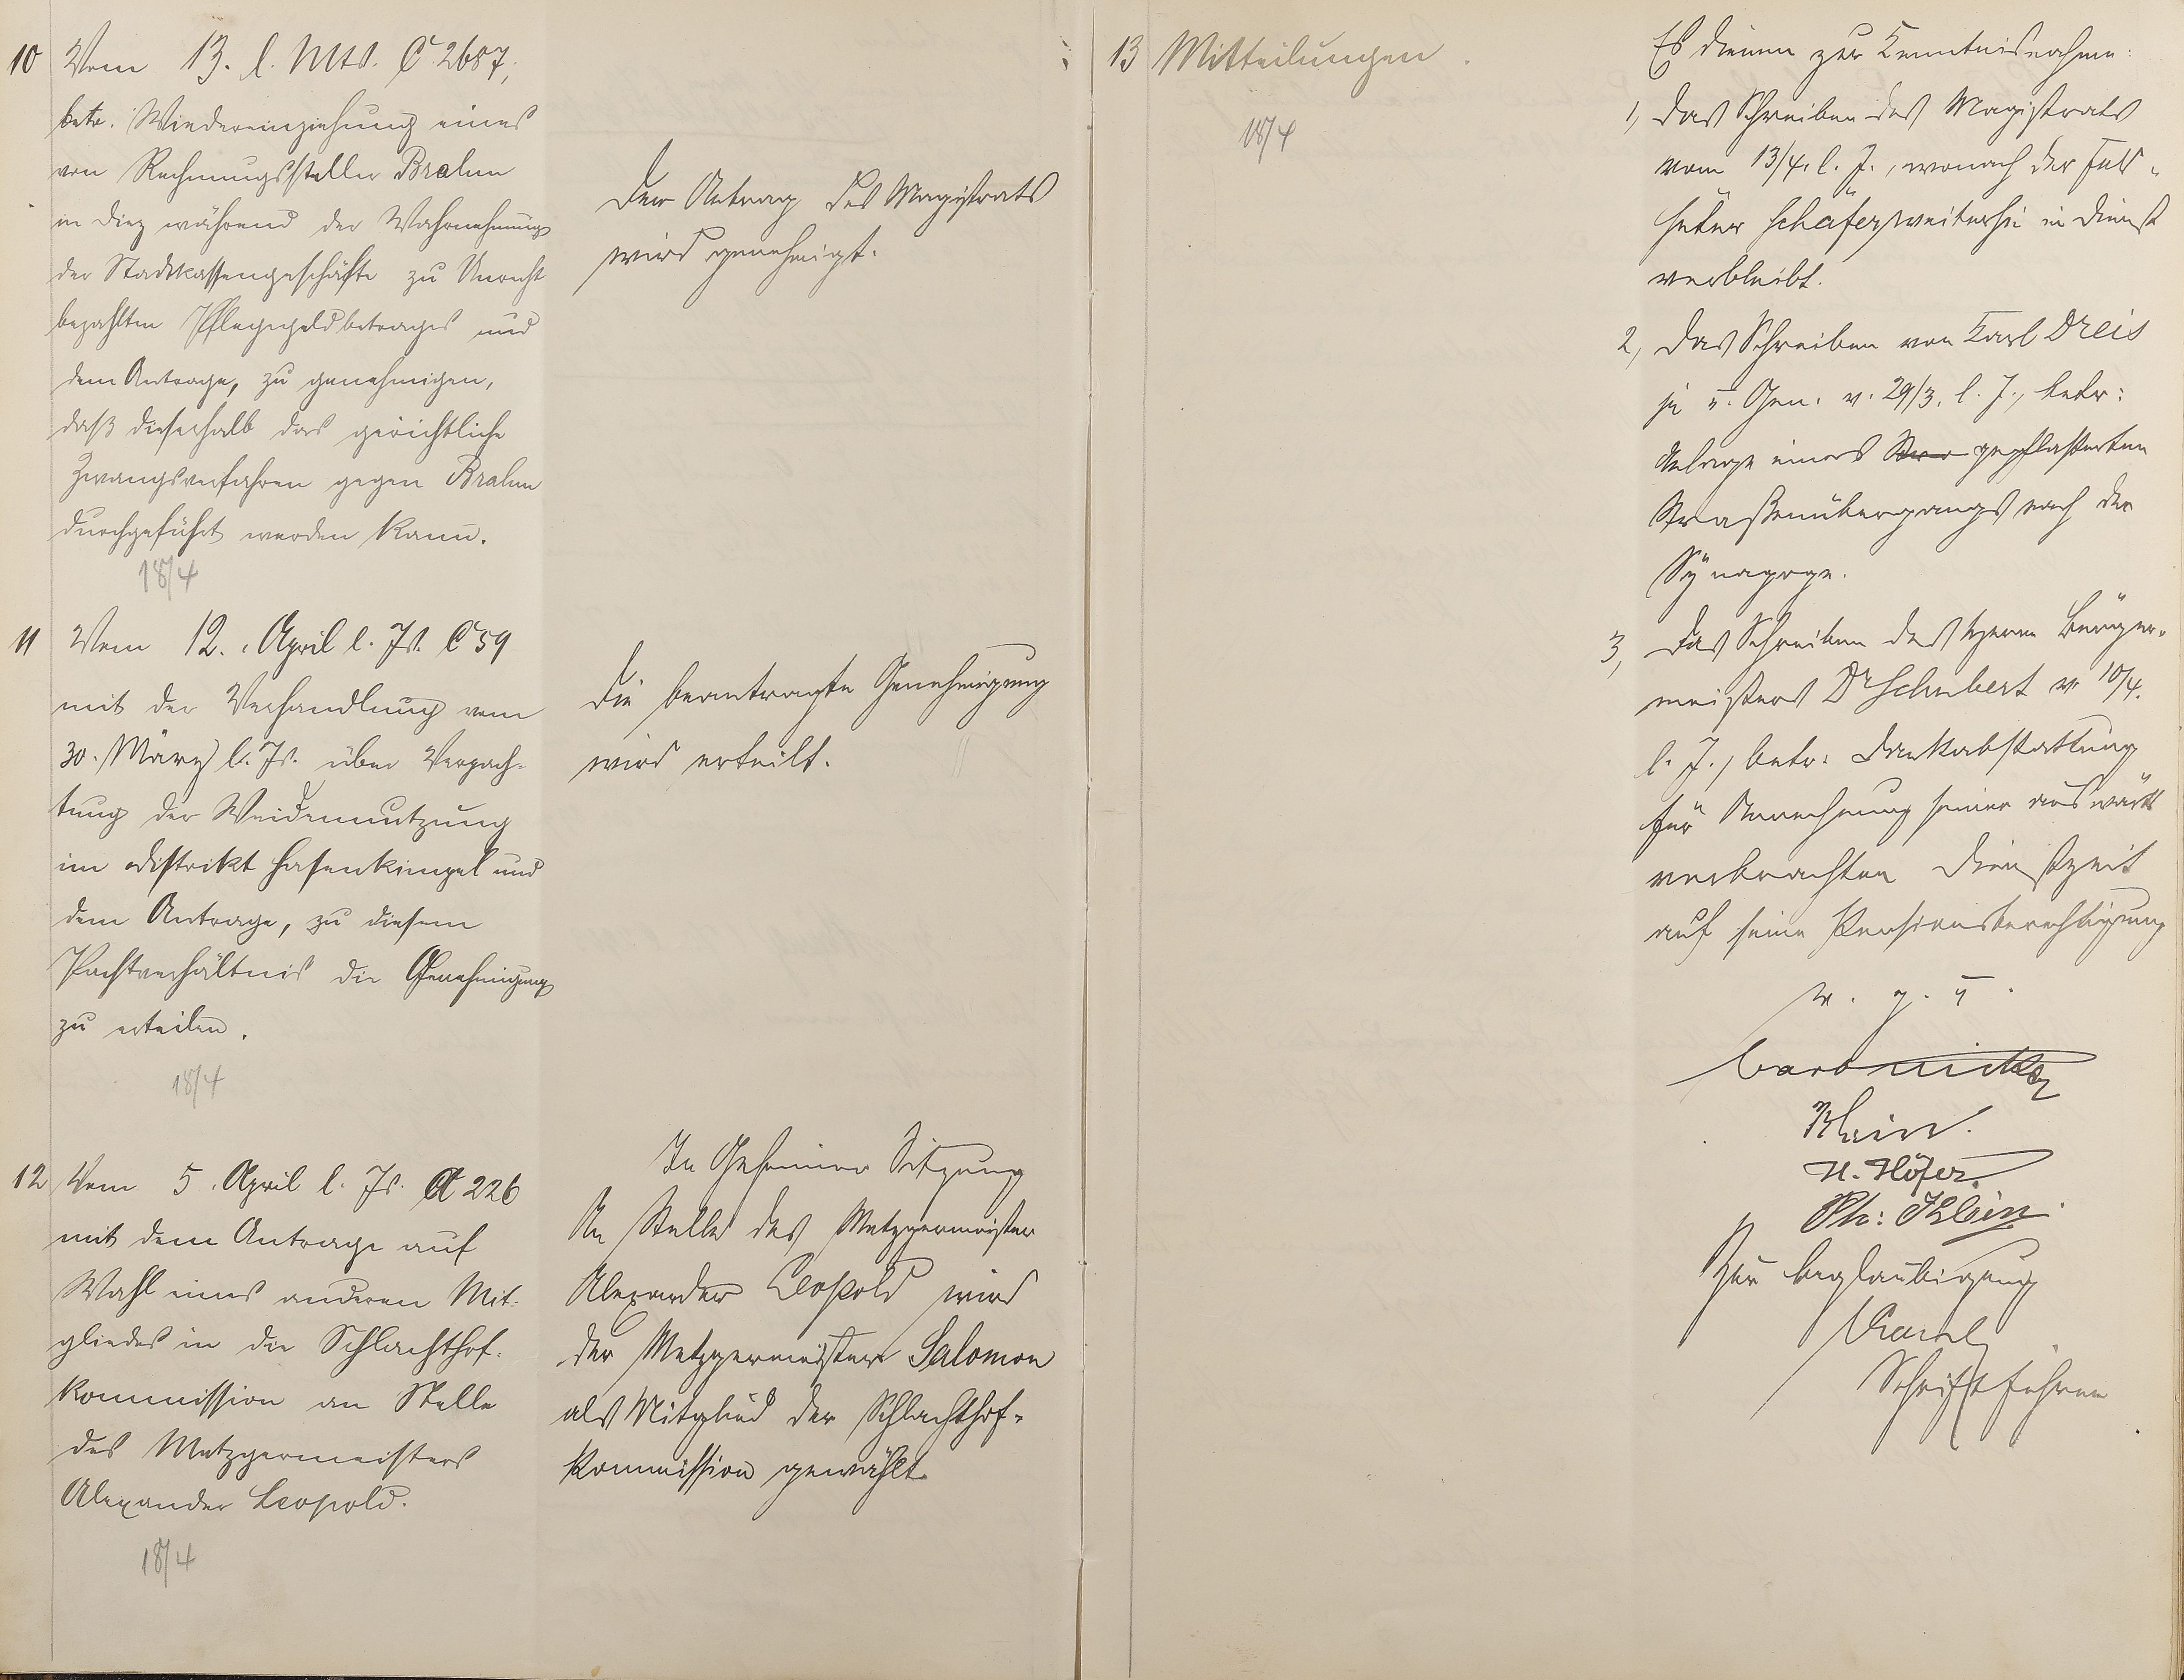 10 Vom 13. l. Mts. C 2687,
betr. Wiedereinziehung eines
von Rechnungssteller Brahm
in Diez während der Wahrnehmung
der Stadtkassengeschäfte zu Unrecht
bezahlten Pflegegeldbetrages und
dem Antrage, zu genehmigen,
daß dieserhalb das gerichtliche
Zwangsverfahren gegen Brahm
durchgeführt werden kann.
18/4
Der Antrag des Magistrats
wird genehmigt.
11 Vom 12. April l. Js. C 59
mit der Verhandlung vom
30. März l. Js. über Verpach-
tung der Weidennutzung
im Distrikt Hasenkimpel und
dem Antrage, zu diesem
Pachtverhältnis die Genehmigung
zu erteilen.
18/4
Die beantragte Genehmigung
wird erteilt.
12 Vom 5. April l. Js. A 226
mit dem Antrage auf
Wahl eines anderen Mit-
gliedes in die Schlachthof-
kommission an Stelle
des Metzgermeisters
Alexander Leopold.
18/4
In Geheimer Sitzung
An Stelle des Metzgermeister
Alexander Leopold wird
der Metzgermeister Salomon
als Mitglied der Schlachthof-
kommission gewählt.
13 Mitteilungen.
18/4
Es dienen zur Kenntnisnahme:
1, Das Schreiben des Magistrats
vom 13/4. l. J., wonach der Feld-
hüter Schäfer weiterhin in Dienst
verbleibt.
2, Das Schreiben von Karl Dreis
u. Gen. v. 29/3. l. J., betr:
Anlage eines gepflasterten
Straßenübergangs nach der
Synagoge.
3, Das Schreiben des Herrn Bürger-
meisters Dr Schubert v. 10/4.
l. J., betr: Dankabstattung
für Anrechnung seiner auswärts
verbrachten Dienstzeit
auf seine Pensionsberechtigung
v. g. u.
Klein.
H. Höfer.
Ph: Klein.
Zur Beglaubigung
Schriftführer